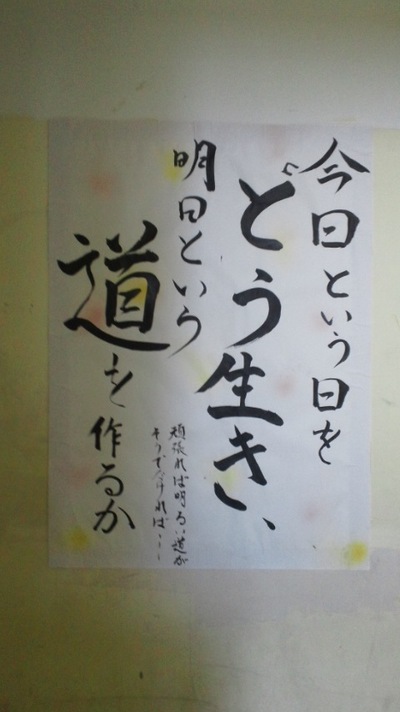 今日という日を
どう生き、
明日という
道を作るか
頑張れば明るい道が
そうでなければ・・・